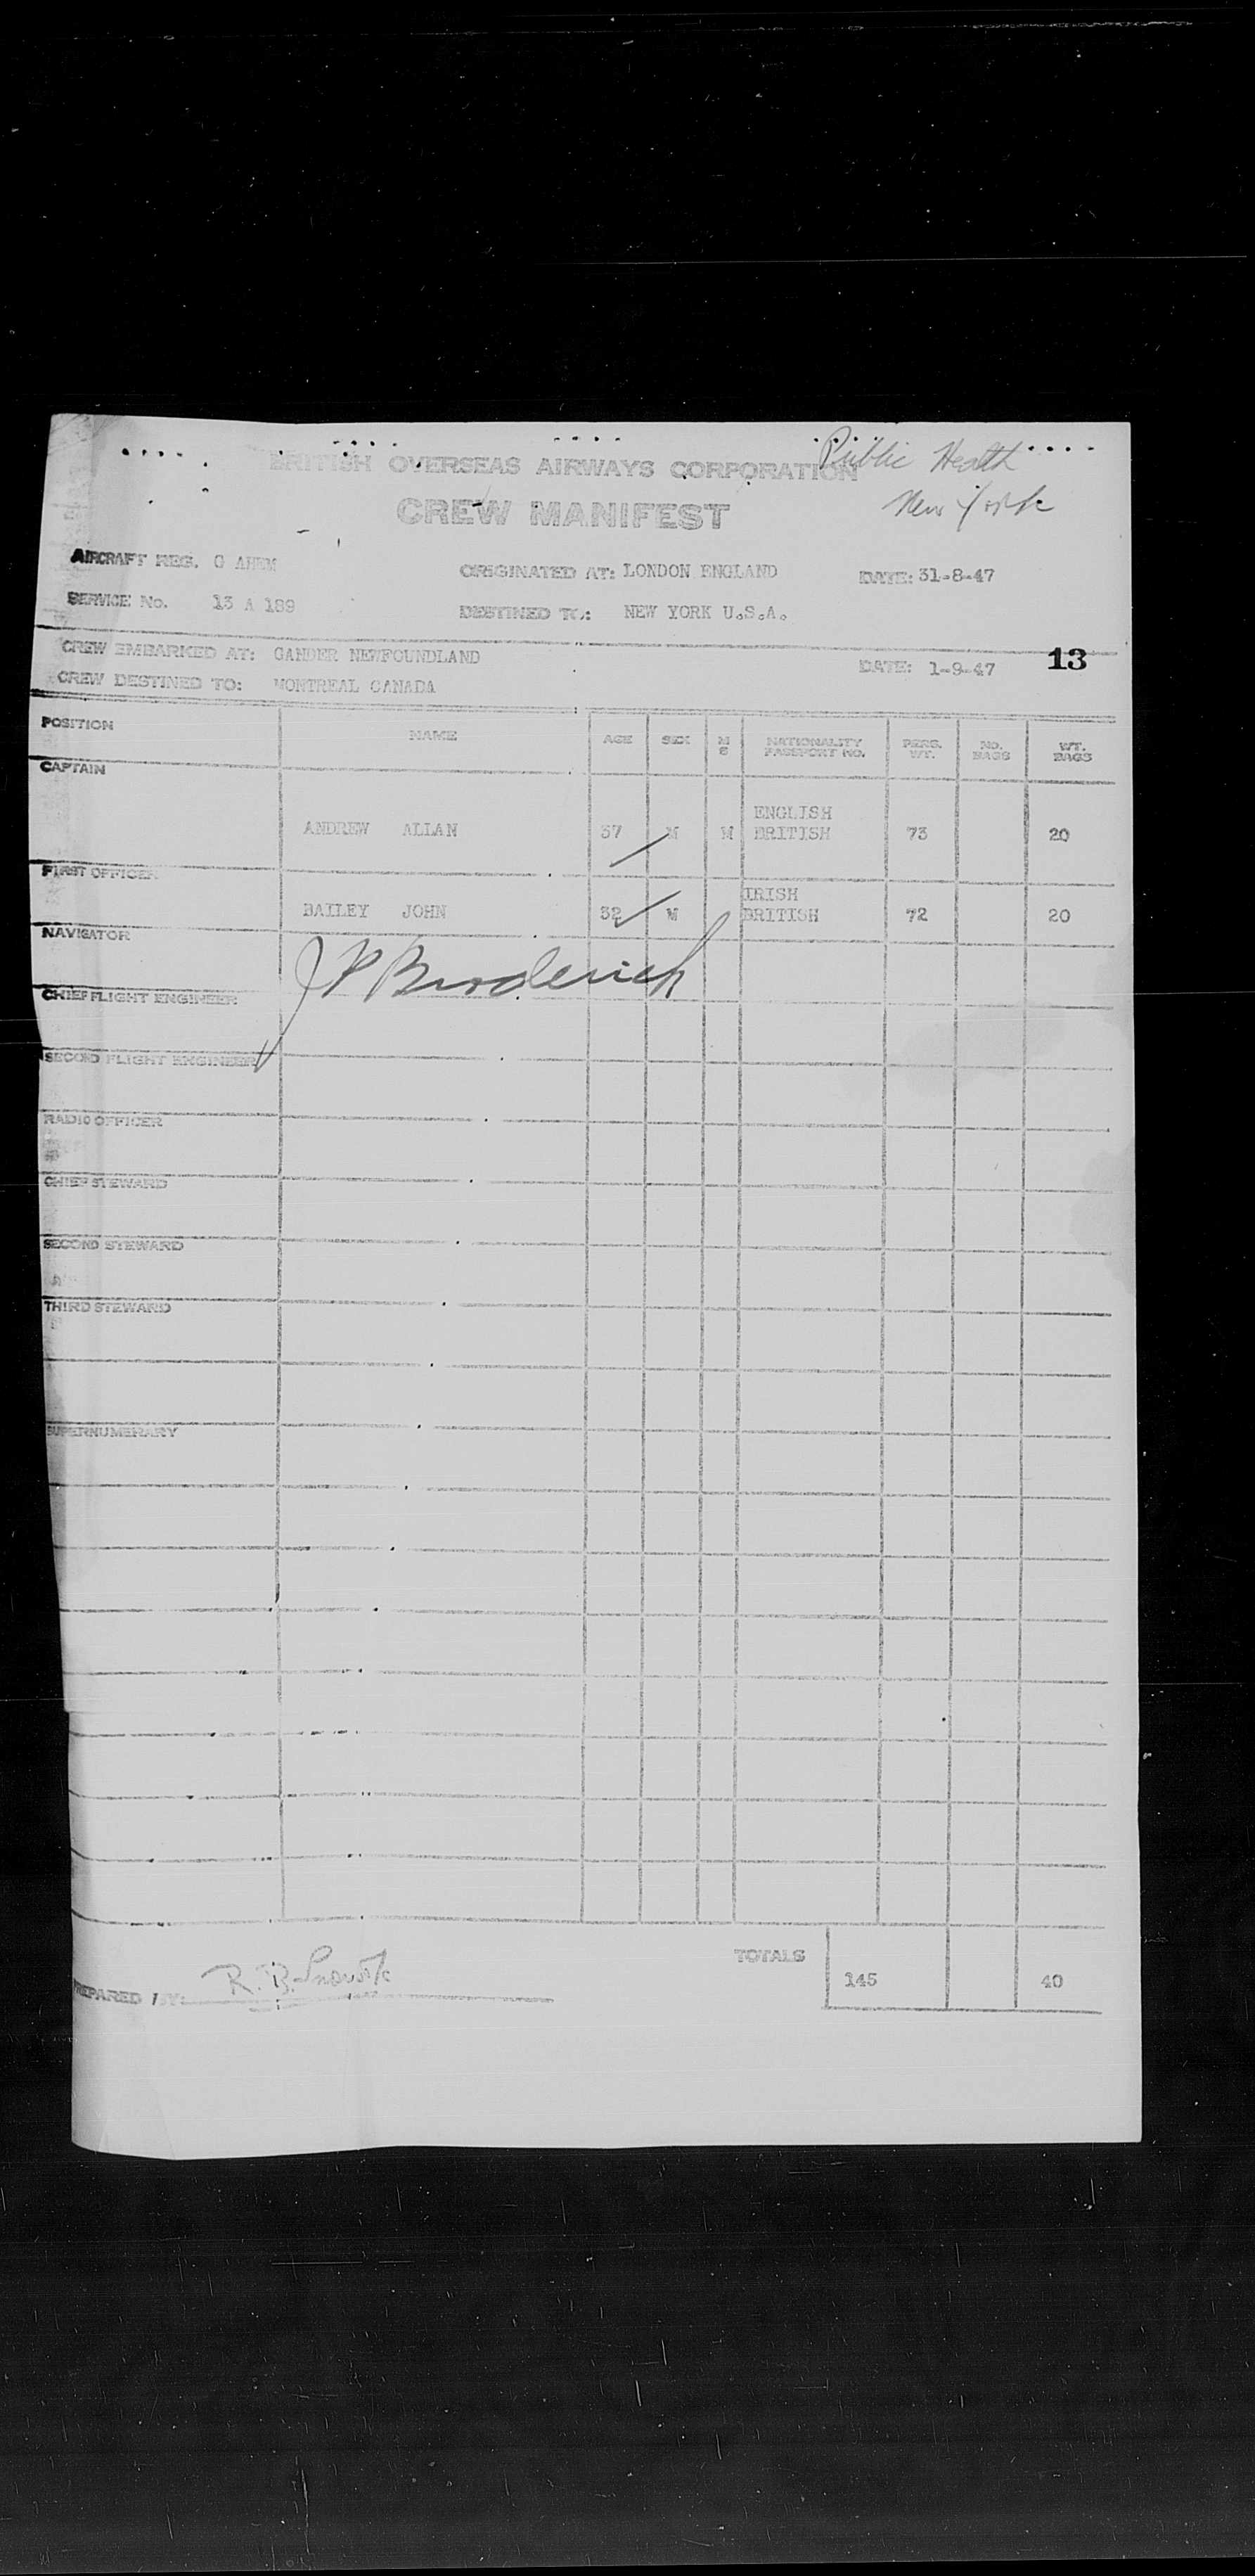 Public Health
BRITISH OVERSEAS AIRWAYS CORPORATION
New York
CREW MANIFEST
AIRCRAFT REG. G AHEM ORIGINATED AT: LONDON ENGLAND DATE: 31-8-47
SERVICE No. 13 A 189 DESTINED TO: NEW YORK U.S.A.
CREW EMBARKED AT: GANDER NEWFOUNDLAND DATE: 1-9-47 13
CREW DESTINED TO: MONTREAL CANADA
POSITION NAME AGE SEX M S NATIONALITY PASSPORT NO. PERS. WT. NO. BAGS WT. BAGS
CAPTAIN
ENGLISH
ANDREW ALLAN 37 M M BRITISH 73 20
FIRST OFFICER
IRISH
BAILEY JOHN 32 M BRITISH 72 20
NAVIGATOR
J P Broderick
CHIEF FLIGHT ENGINEER
SECOND FLIGHT ENGINEER
RADIO OFFICER
CHIEF STEWARD
SECOND STEWARD
THIRD STEWARD
SUPERNUMERARY
TOTALS 145 40
PREPARED BY: R. B.